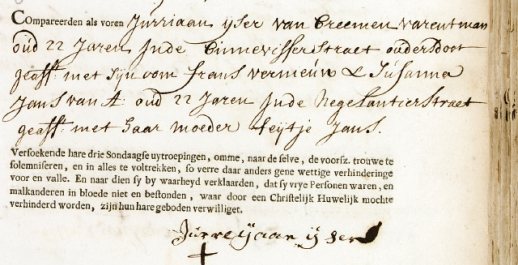 Compareerden als voren Jurriaan ijser van Breemen varentman
oud 22 Jaren Inde Binnevisserstraet ouders doot
geasst. met sijn oom frans vermeúw & Súsanna
Jans van A: oud 22 Jaren Inde Negelantierstraet
geasst. met haar moeder Jans.
Versoekende hare drie Sondaagse uytroepingen, omme, naar de selve, de voorsz. trouwe te
solemniseren, en in alles te voltrekken, so verre daar anders gene wettige verhinderinge
voor en valle. En naar dien sy by waarheyd verklaarden, dat sy vrye Personen waren, en
malkanderen in bloede niet en bestonden, waar door een Christelijk Huwelijk mochte
verhinderd worden, zijn hun hare geboden verwilliget.
Jurreijaan ijser